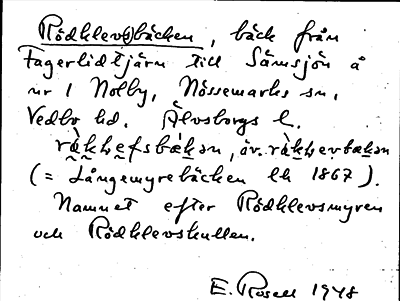 Rödklev(s)bäcken, bäck från
Fagerlidtjärn till Sämsjön å
nr 1 Nolby, Nössemarks sn,
Vedbo hd. Älvsborgs l.
(= Långemyrebäcken Ek 1867).
Namnet efter Rödklevsmyren
och Rödklevskullen.
E. Rosell 1948